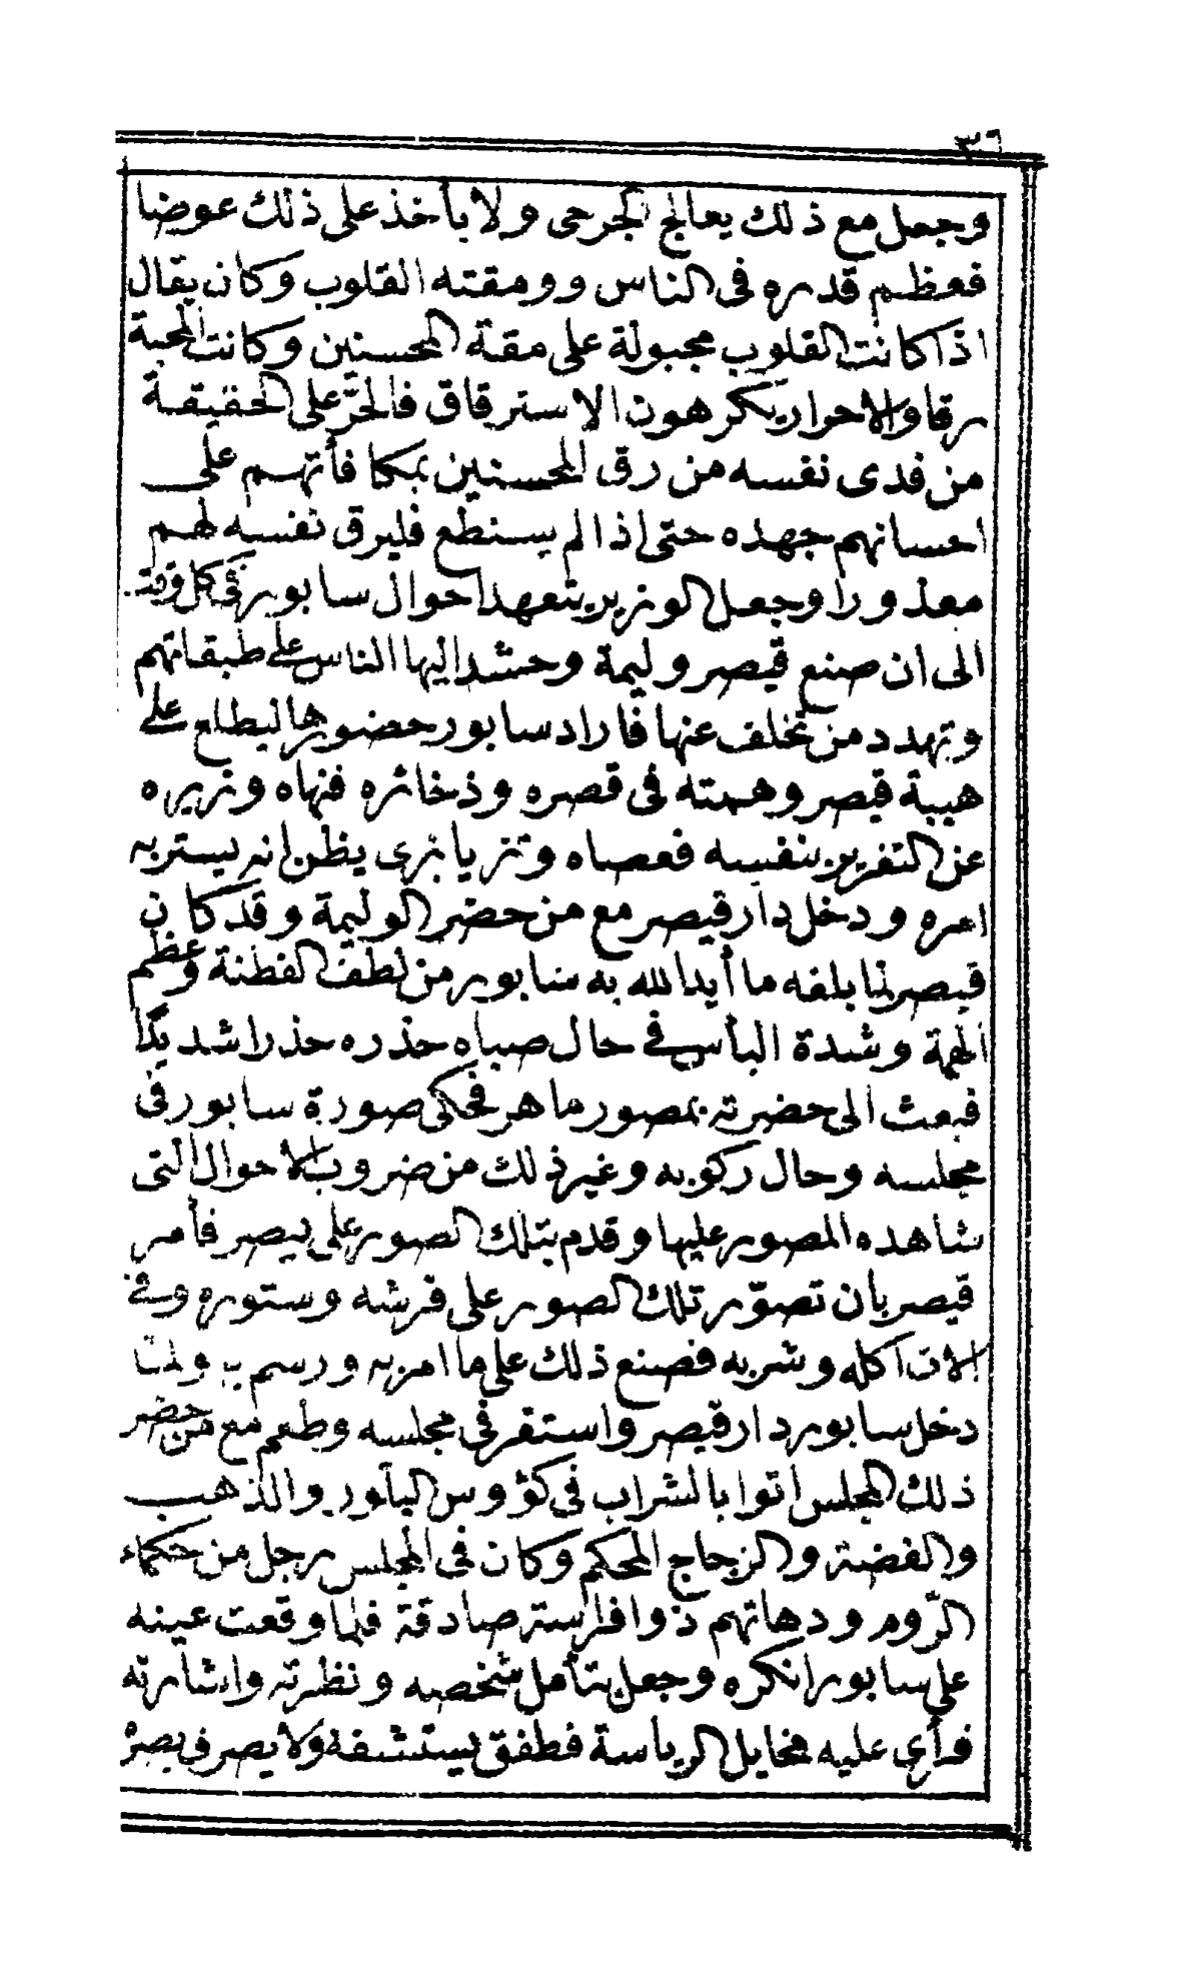 ٣٦
وجعل مع ذلك يعالج الجرحى ولا يأخذ على ذلك عوضا
فعظم قدره فى الناس وومقته القلوب وكان يقال
اذا كانت القلوب مجبولة على مقة المحسنين وكانت المحبة
رقا والاحرار يكرهون الاسترقاق فالحرّ على الحقيقة
من فدى نفسه من رق المحسنين بمكافأتهم على
احسانهم جهده حتى اذا لم يستطع فليرق نفسه لهم
معذورا وجعل الوزير يتعهد احوال سابور فى كل وقت
الى ان صنع قيصر وليمة وحشد اليها الناس على طبقاتهم
وتهدد من تخلف عنها فاراد سابور حضورها ليطلع على
هيبة قيصر وهمته فى قصره وذخائره فنهاه وزيره
عن التغرير بنفسه فعصاه وتزيا بزى يظن انه يستر به
امره ودخل دار قيصر مع من حضر الوليمة وقد كان
قيصر لما بلغه ما أيد الله به سابور من لطف الفطنة وعظم
الهمة وشدة البأس فى حال صباه حذره حذرا شديدا
فبعث الى حضرته بمصور ماهر فحكى صورة سابور فى
مجلسه وحال ركوبه وغير ذلك من ضروب الاحوال التى
شاهده المصور عليها وقدم بتلك الصور على قيصر فأمر
قيصر بان تصوّر تلك الصور على فرشه وستوره وفى
الات اكله وشربه فصنع ذلك على ما امر به ورسم به ولما
دخل سابور دار قيصر واستقر فى مجلسه وطعم مع من حضر
ذلك المجلس اتوا بالشراب فى كؤوس البلور والذهب
والفضة والزجاج المحكم وكان فى المجلس رجل من حكماء
الرّوم ودهاتهم ذوا فراسة صادقة فلما وقعت عينه
على سابور انكره وجعل يتأمل شخصه ونظرته واشارته
فرأى عليه مخايل الرياسة فطفق يستشفه ولا يصرف بصره